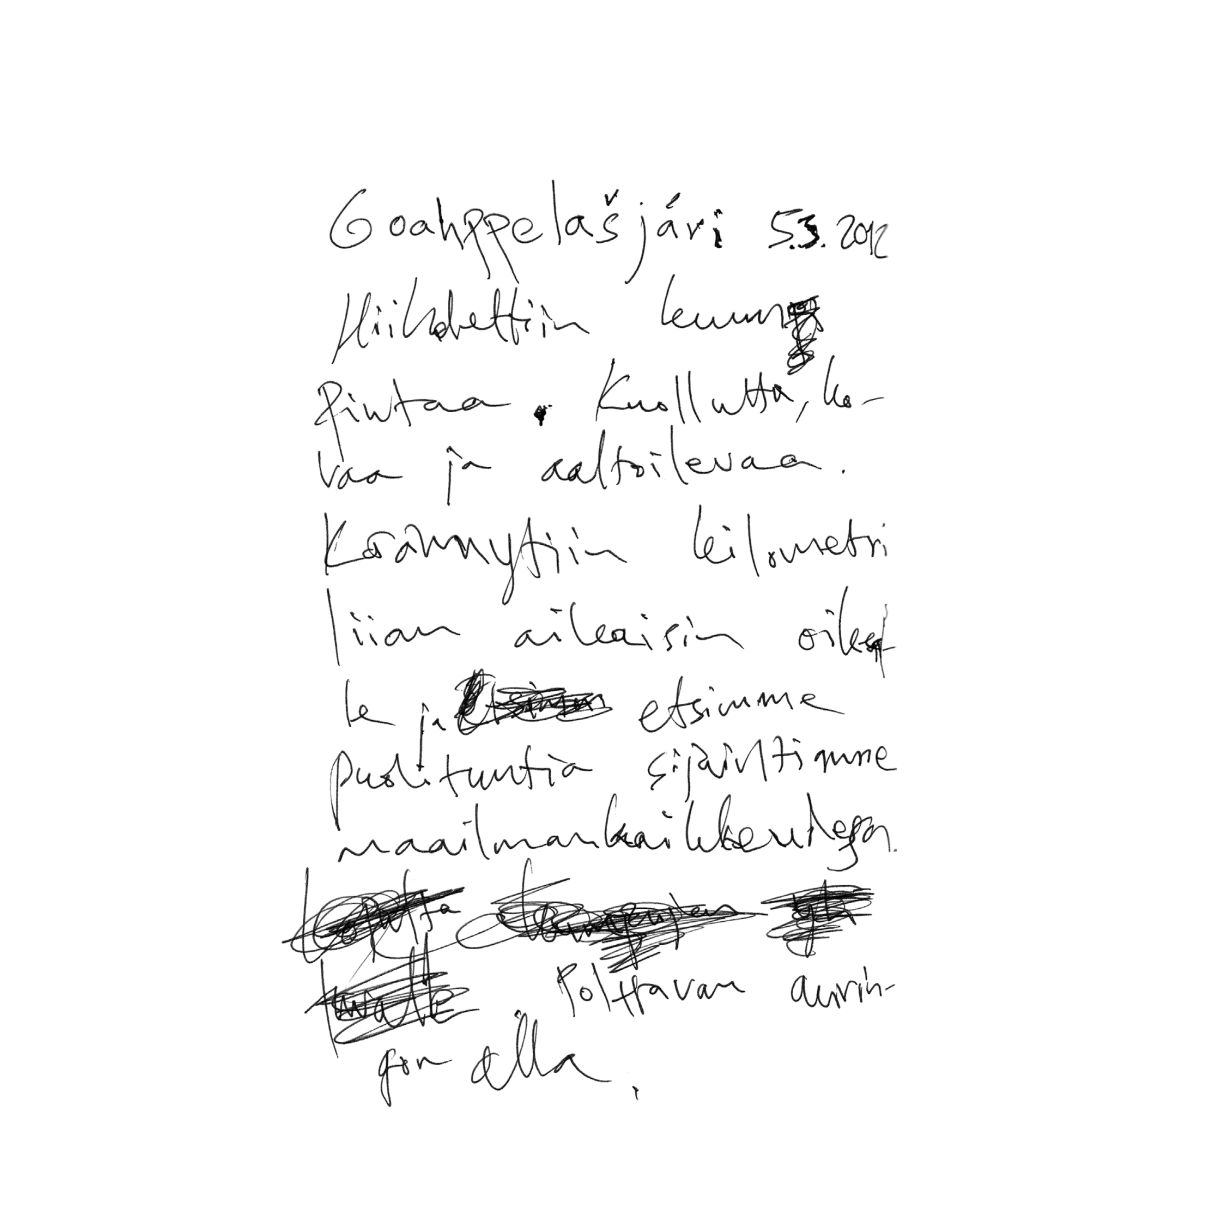 Goahppelašjávri 5.3.2012
Hiihdettiin kuun
pintaa. Kuollutta, ko-
vaa ja aaltoilevaa.
Käännyttiin kilometri
liian aikaisin oikeal-
le ja etsimme
puolituntia sijaintimme
maailmankaikkeudessa.
Polttavan aurin-
gon alla.